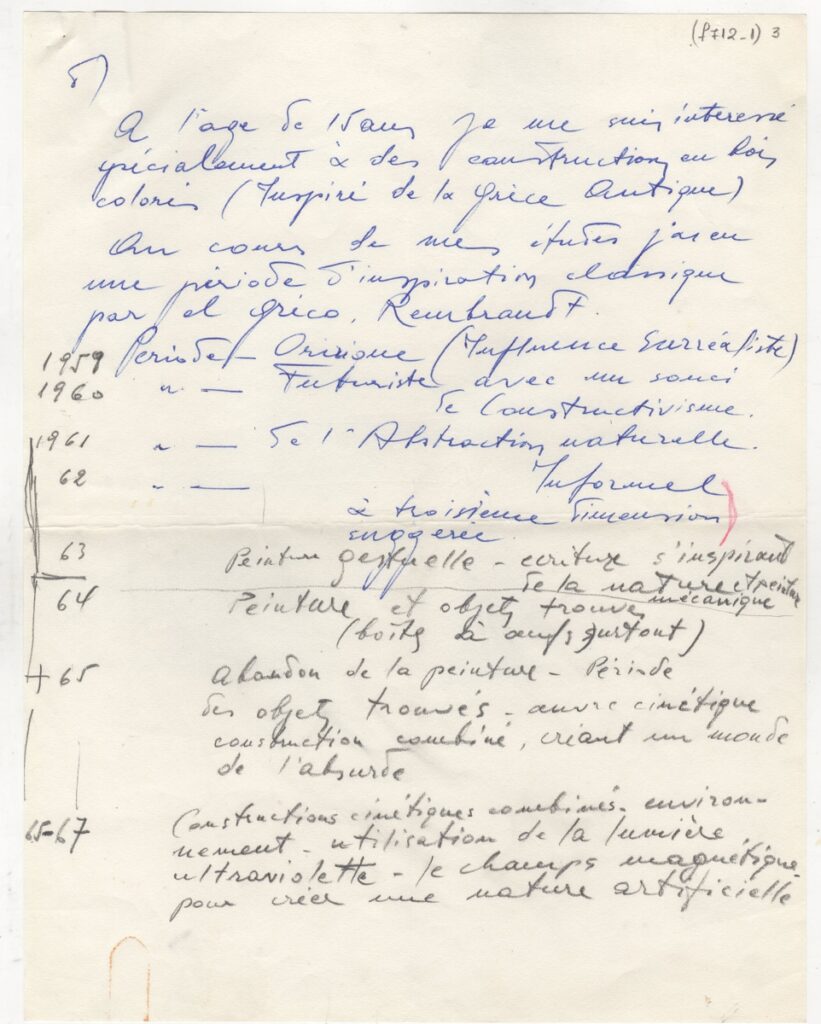 (f712-1) 3
A l'age de 15 ans je me suis interessé
spécialement à des constructions en bois
colorés (Inspiré de la Grèce Antique)
Au cours de mes études j'ai eu
une période d'inspiration classique
par el Gréco, Rembrandt.
1959 Periode - Onirique (Influence Surréaliste)
1960 " — Futuriste avec un souci
de Constructivisme.
1961 " — de l'Abstraction naturelle.
62 " — Informel
à troisième dimension
suggerée
63 Peinture gestuelle - ecriture s'inspirant
de la nature et peinture
mécanique
64 Peinture et objets trouve
(boîtes à œufs surtout)
+ 65 Abandon de la peinture - Période
des objets trouvés - œuvre cinétique
construction combiné, créant un monde
de l'absurde
65-67 Constructions cinétiques combinés - environ-
nement - utilisation de la lumière
ultraviolette - le champs magnétique
pour créer une nature artificielle